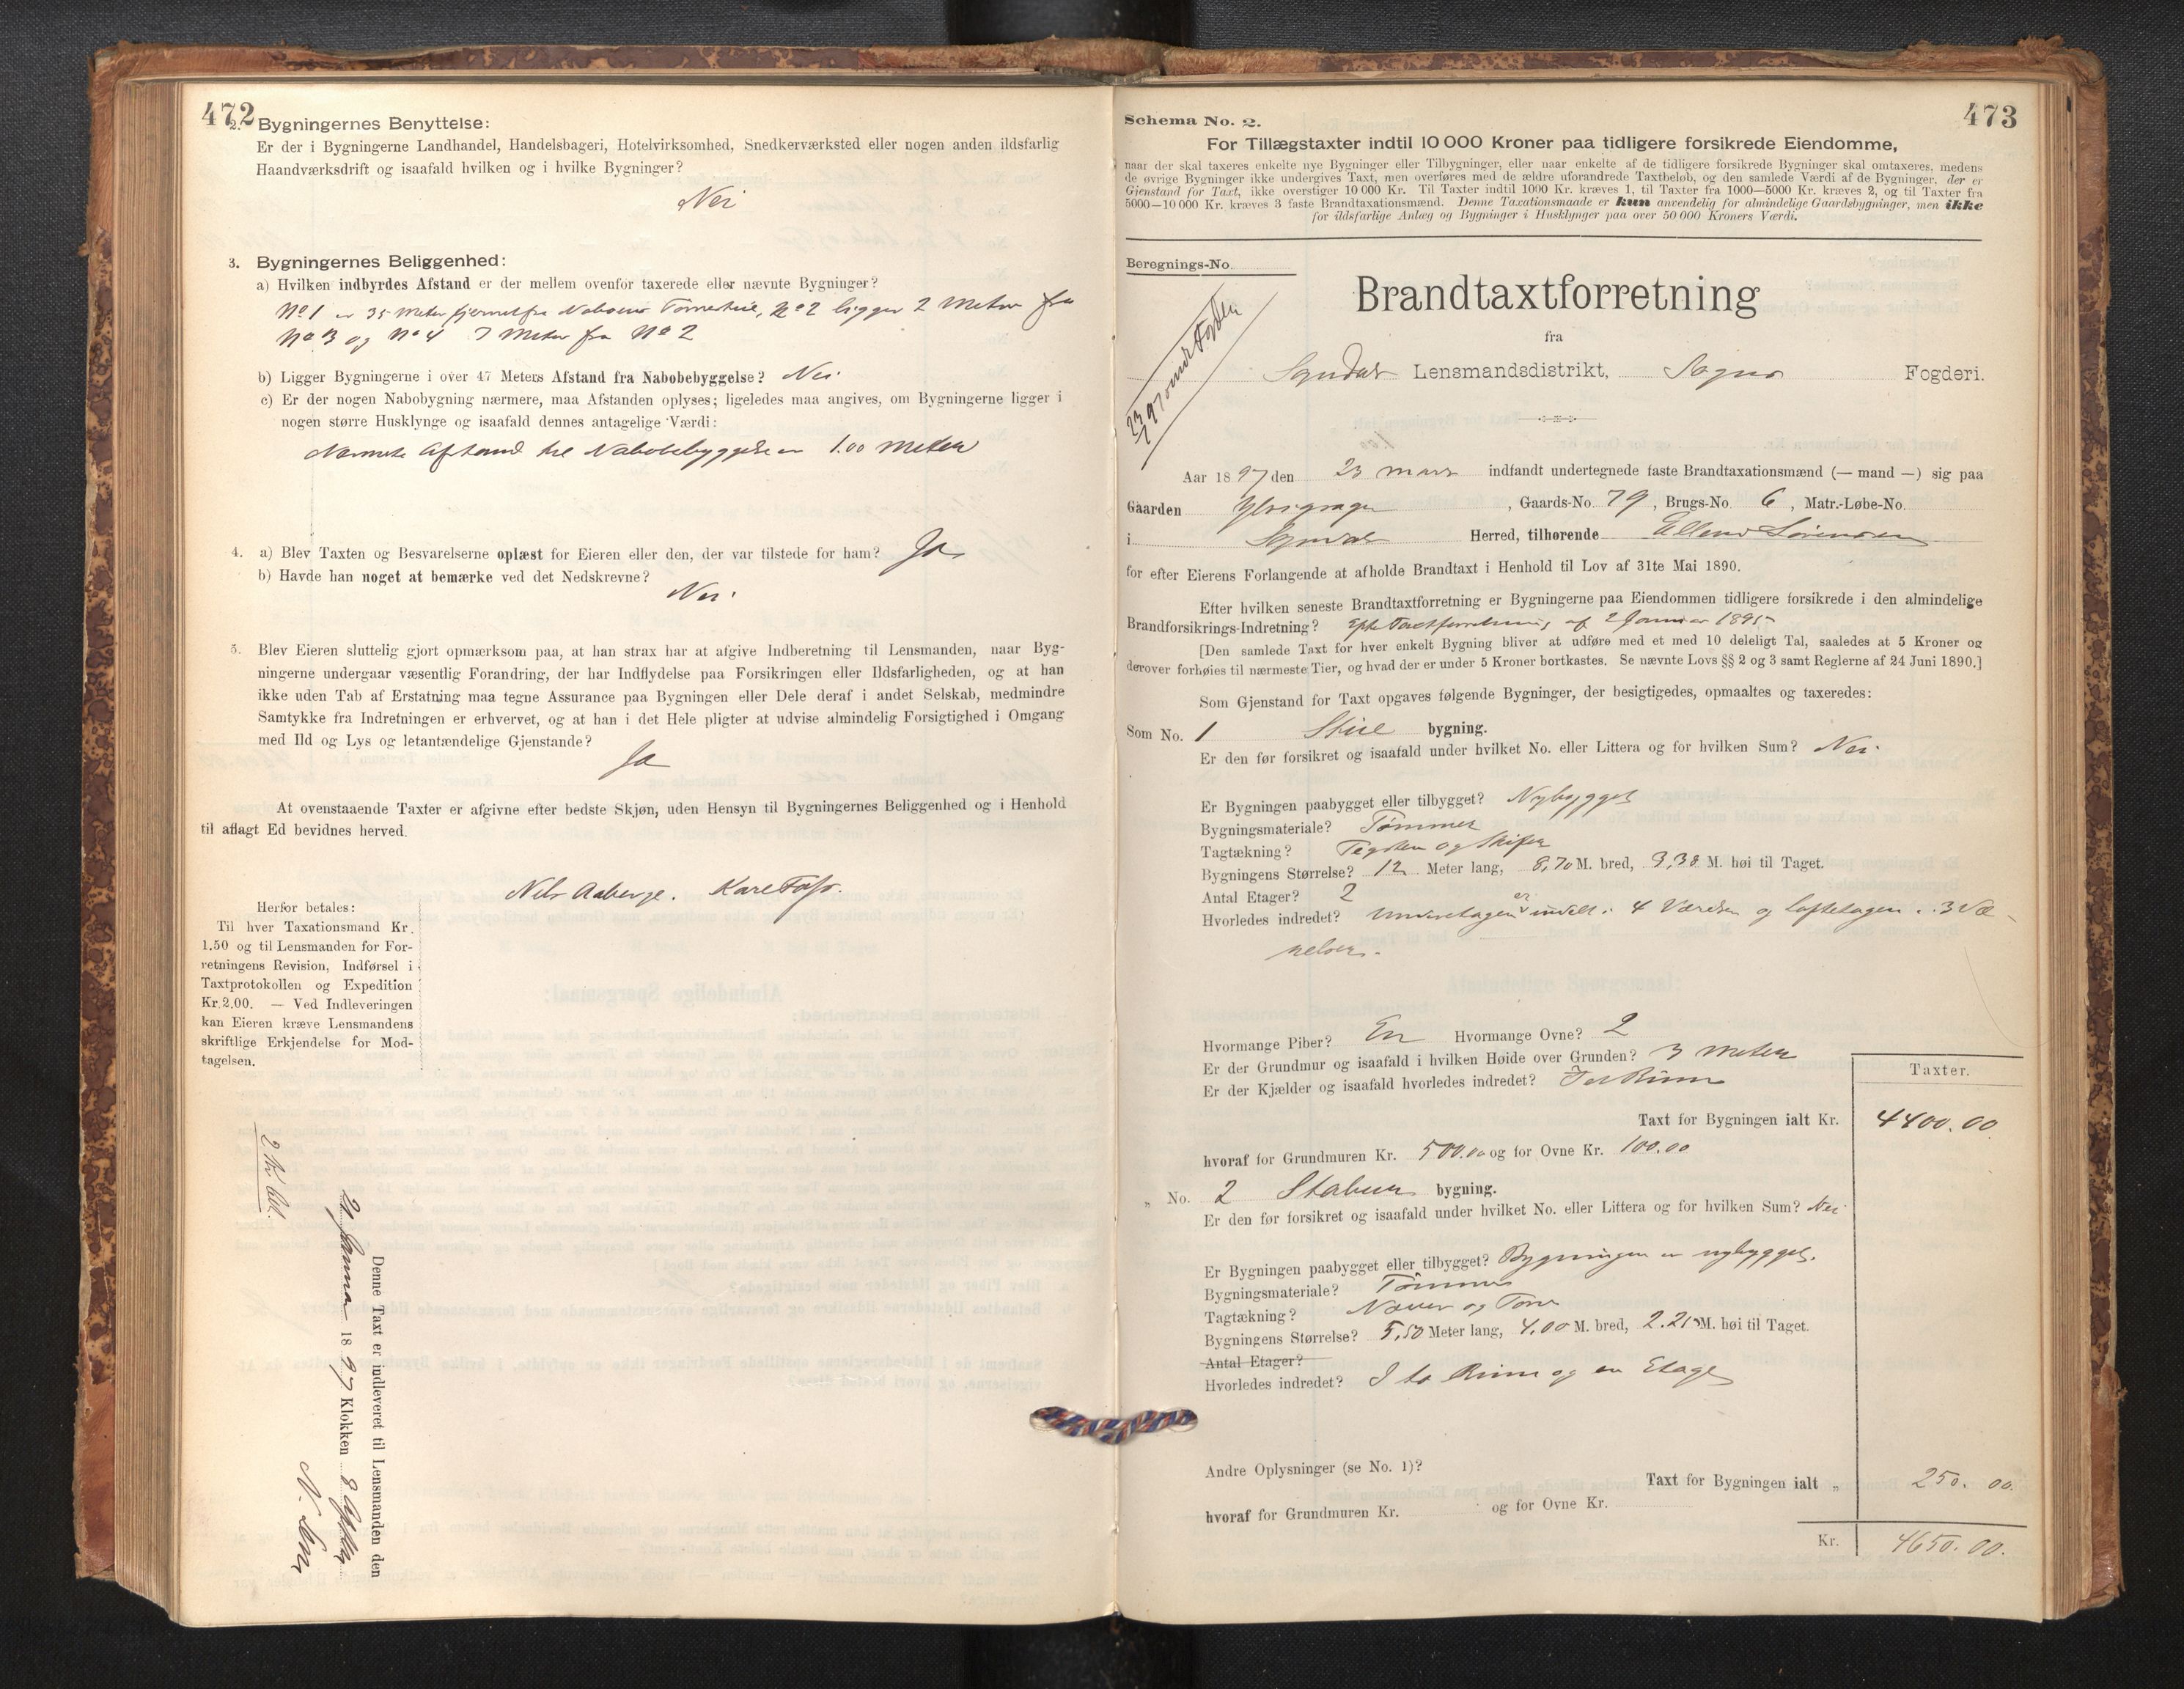 472
2. Bygningernes Benyttelse:
Er der i Bygningerne Landhandel, Handelsbageri, Hotelvirksomhed, Snedkerværksted eller nogen anden ildsfarlig
Haandværksdrift og isaafald hvilken og i hvilke Bygninger?
Nei
3. Bygningernes Beliggenhed:
a) Hvilken indbyrdes Afstand er der mellem ovenfor taxerede eller nævnte Bygninger?
No 1 er 35 Meter fjernet fra Naboens, No 2 ligger 2 Meter fra
No 3 og No 4 7 Meter fra No 2
b) Ligger Bygningerne i over 47 Meters Afstand fra Nabobebyggelse? Nei
c) Er der nogen Nabobygning nærmere, maa Afstanden oplyses; ligeledes maa angives, om Bygningerne ligger i
nogen større Husklynge og isaafald dennes antagelige Værdi:
Nærmeste Afstand til Nabobebyggelse er 1.00 Meter
4. a) Blev Taxten og Besvarelserne oplæst for Eieren eller den, der var tilstede for ham? Ja
b) Havde han noget at bemærke ved det Nedskrevne?
Nei.
5. Blev Eieren sluttelig gjort opmærksom paa, at han strax har at afgive Indberetning til Lensmanden, naar Byg-
ningerne undergaar væsentlig Forandring, der har Indflydelse paa Forsikringen eller Ildsfarligheden, og at han
ikke uden Tab af Erstatning maa tegne Assurance paa Bygningen eller Dele deraf i andet Selskab, medmindre
Samtykke fra Indretningen er erhvervet, og at han i det Hele pligter at udvise almindelig Forsigtighed i Omgang
med Ild og Lys og letantændelige Gjenstande?
Ja
At ovenstaaende Taxter er afgivne efter bedste Skjøn, uden Hensyn til Bygningernes Beliggenhed og i Henhold
til aflagt Ed bevidnes herved.
Nils Aaberge. Kare Foss.
Herfor betales:
Til hver Taxationsmand Kr.
1.50 og til Lensmanden for For-
retningens Revision, Indførsel i
Taxtprotokollen og Expedition
Kr. 2.00. — Ved Indleveringen
kan Eieren kræve Lensmandens
skriftlige Erkjendelse for Mod-
tagelsen.
2 Kr. bet.
Denne Taxt er indleveret til Lensmanden den
1897 Klokken 8
473
Schema No. 2.
For Tillægstaxter indtil 10 000 Kroner paa tidligere forsikrede Eiendomme,
naar der skal taxeres enkelte nye Bygninger eller Tilbygninger, eller naar enkelte af de tidligere forsikrede Bygninger skal omtaxeres, medens
de øvrige Bygninger ikke undergives Taxt, men overføres med de ældre uforandrede Taxtbeløb, og den samlede Værdi af de Bygninger, der er
Gjenstand for Taxt, ikke overstiger 10 000 Kr. Til Taxter indtil 1000 Kr. kræves 1, til Taxter fra 1000—5000 Kr. kræves 2, og til Taxter fra
5000—10 000 Kr. kræves 3 faste Brandtaxationsmænd. Denne Taxationsmaade er kun anvendelig for almindelige Gaardsbygninger, men ikke
for ildsfarlige Anlæg og Bygninger i Husklynger paa over 50 000 Kroners Værdi.
Beregnings-No.
Brandtaxtforretning
fra
Sogndal Lensmandsdistrikt, Sogns Fogderi.
Aar 1897 den 23 mars indfandt undertegnede faste Brandtaxationsmænd (— mand —) sig paa
Gaarden, Gaards-No. 79, Brugs-No. 6, Matr.-Løbe-No.
i Sogndal Herred, tilhørende Ellend Sørensen
for efter Eierens Forlangende at afholde Brandtaxt i Henhold til Lov af 31te Mai 1890.
Efter hvilken seneste Brandtaxtforretning er Bygningerne paa Eiendommen tidligere forsikrede i den almindelige
Brandforsikrings-Indretning? Efter Taxtforretning af 2 Januar 1895
[Den samlede Taxt for hver enkelt Bygning bliver at udføre med et med 10 deleligt Tal, saaledes at 5 Kroner og
derover forhøies til nærmeste Tier, og hvad der er under 5 Kroner bortkastes. Se nævnte Lovs §§ 2 og 3 samt Reglerne af 24 Juni 1890.]
Som Gjenstand for Taxt opgaves følgende Bygninger, der besigtigedes, opmaaltes og taxeredes:
Som No. 1 bygning.
Er den før forsikret og isaafald under hvilket No. eller Littera og for hvilken Sum? Nei.
Er Bygningen paabygget eller tilbygget? Nybygget
Bygningsmateriale? Tømmer
Tagtækning? Tegsten og Skifer
Bygningens Størrelse? 12 Meter lang, 8,70 M. bred, 3,38 M. høi til Taget.
Antal Etager? 2
Hvorledes indredet? Underetagen er inddelt i 4 Værelser og loftetagen i 3 Væ-
relser.
Hvormange Piber? En Hvormange Ovne? 2
Er der Grundmur og isaafald i hvilken Høide over Grunden? 3 Meter
Er der Kjælder og isaafald hvorledes indredet? I et Rum
Taxter.
Taxt for Bygningen ialt Kr. 4400.00
hvoraf for Grundmuren Kr. 500.00 og for Ovne Kr. 100.00
„ No. 2 Stabur bygning.
Er den før forsikret og isaafald under hvilket No. eller Littera og for hvilken Sum? Nei
Er Bygningen paabygget eller tilbygget? Bygningen er nybygget.
Bygningsmateriale? Tømmer
Tagtækning? Næver og Torv
Bygningens Størrelse? 5,50 Meter lang, 4,00 M. bred, 2.25 M. høi til Taget.
Antal Etager?
Hvorledes indredet? I to Rum og en Etage
Andre Oplysninger (se No. 1)?
Taxt for Bygningen ialt „ 250.00.
hvoraf for Grundmuren Kr. og for Ovne Kr.
Kr. 4650.00.